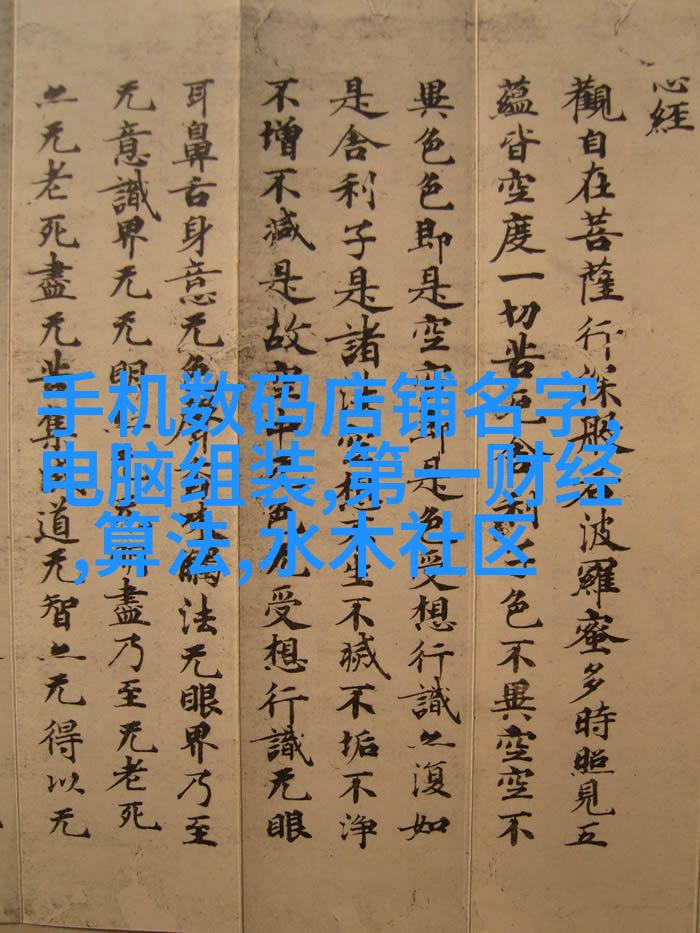 心經
觀自在菩薩行深般若波羅蜜多時照見五
蘊皆空度一切苦厄舍利子色不異空空不
異色色即是空空即是色受想行識亦復如
是舍利子是諸法空想不生不滅不垢不浄
不增不減是故空中无色无受想行識无眼
耳鼻舌身意无色聲香味觸法无眼界乃至
无意識界无无明盡乃至无老死
亦无老死盡无苦集滅道无智亦无得以无
手机数码店铺名字,
电脑组装,第一财经
,算法,水木社区